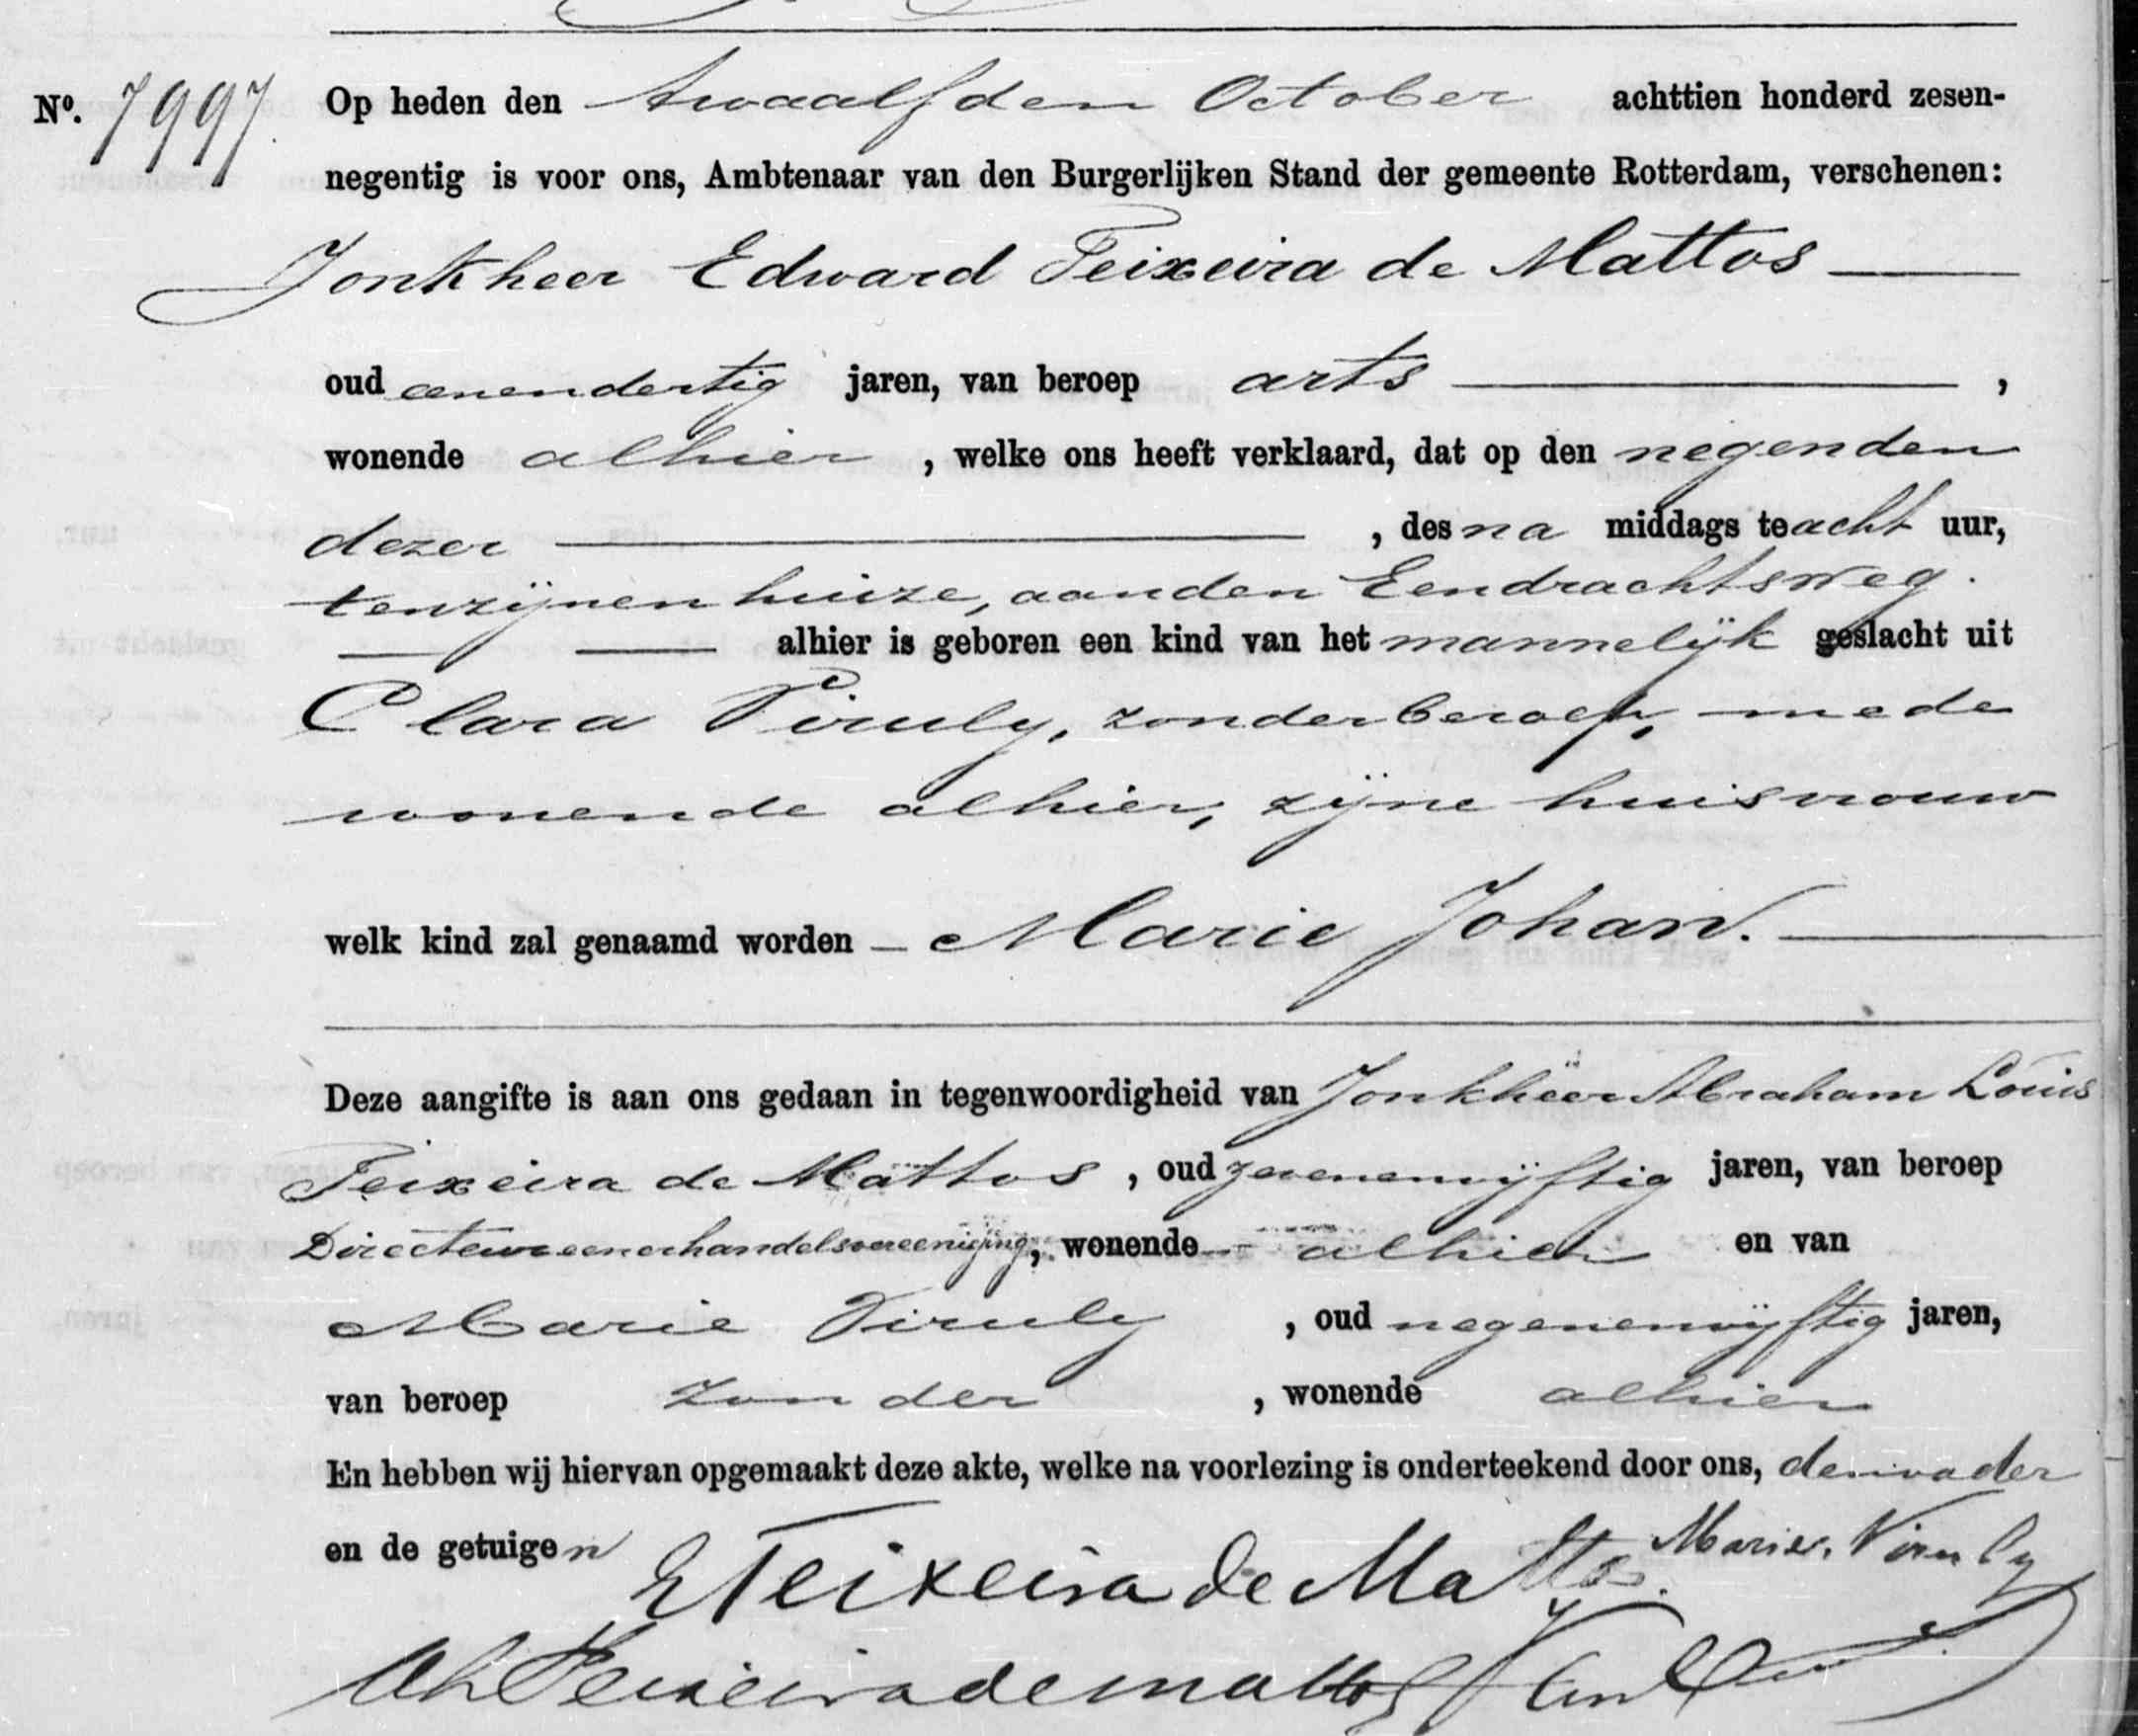 No. 7997. Op heden den twaalfden October achttien honderd zesen-
negentig is voor ons, Ambtenaar van den Burgerlijken Stand der gemeente Rotterdam, verschenen:
Jonkheer Edward Teixeira de Mattos
oud eenendertig jaren, van beroep arts ,
wonende alhier , welke ons heeft verklaard, dat op den negenden
dezer , des na middags te acht uur,
ten zijnen huize, aan den Eendrachtsweg.
alhier is geboren een kind van het mannelijk geslacht uit
Clara Viruly, zonder beroep, mede
wonende alhier, zijne huisvrouw
welk kind zal genaamd worden Marie Johan.
Deze aangifte is aan ons gedaan in tegenwoordigheid van Jonkheer Abraham Louis
Teixeira de Mattos , oud zevenenvijftig jaren, van beroep
Directeur eener handelsvereeniging, wonende alhier en van
Marie Viruly , oud negenenvijftig jaren,
van beroep zonder , wonende alhier
En hebben wij hiervan opgemaakt deze akte, welke na voorlezing is onderteekend door ons, den vader
en de getuigen
E Teixeira de Mattos. Marie Viruly
AL Teixeira de Mattos